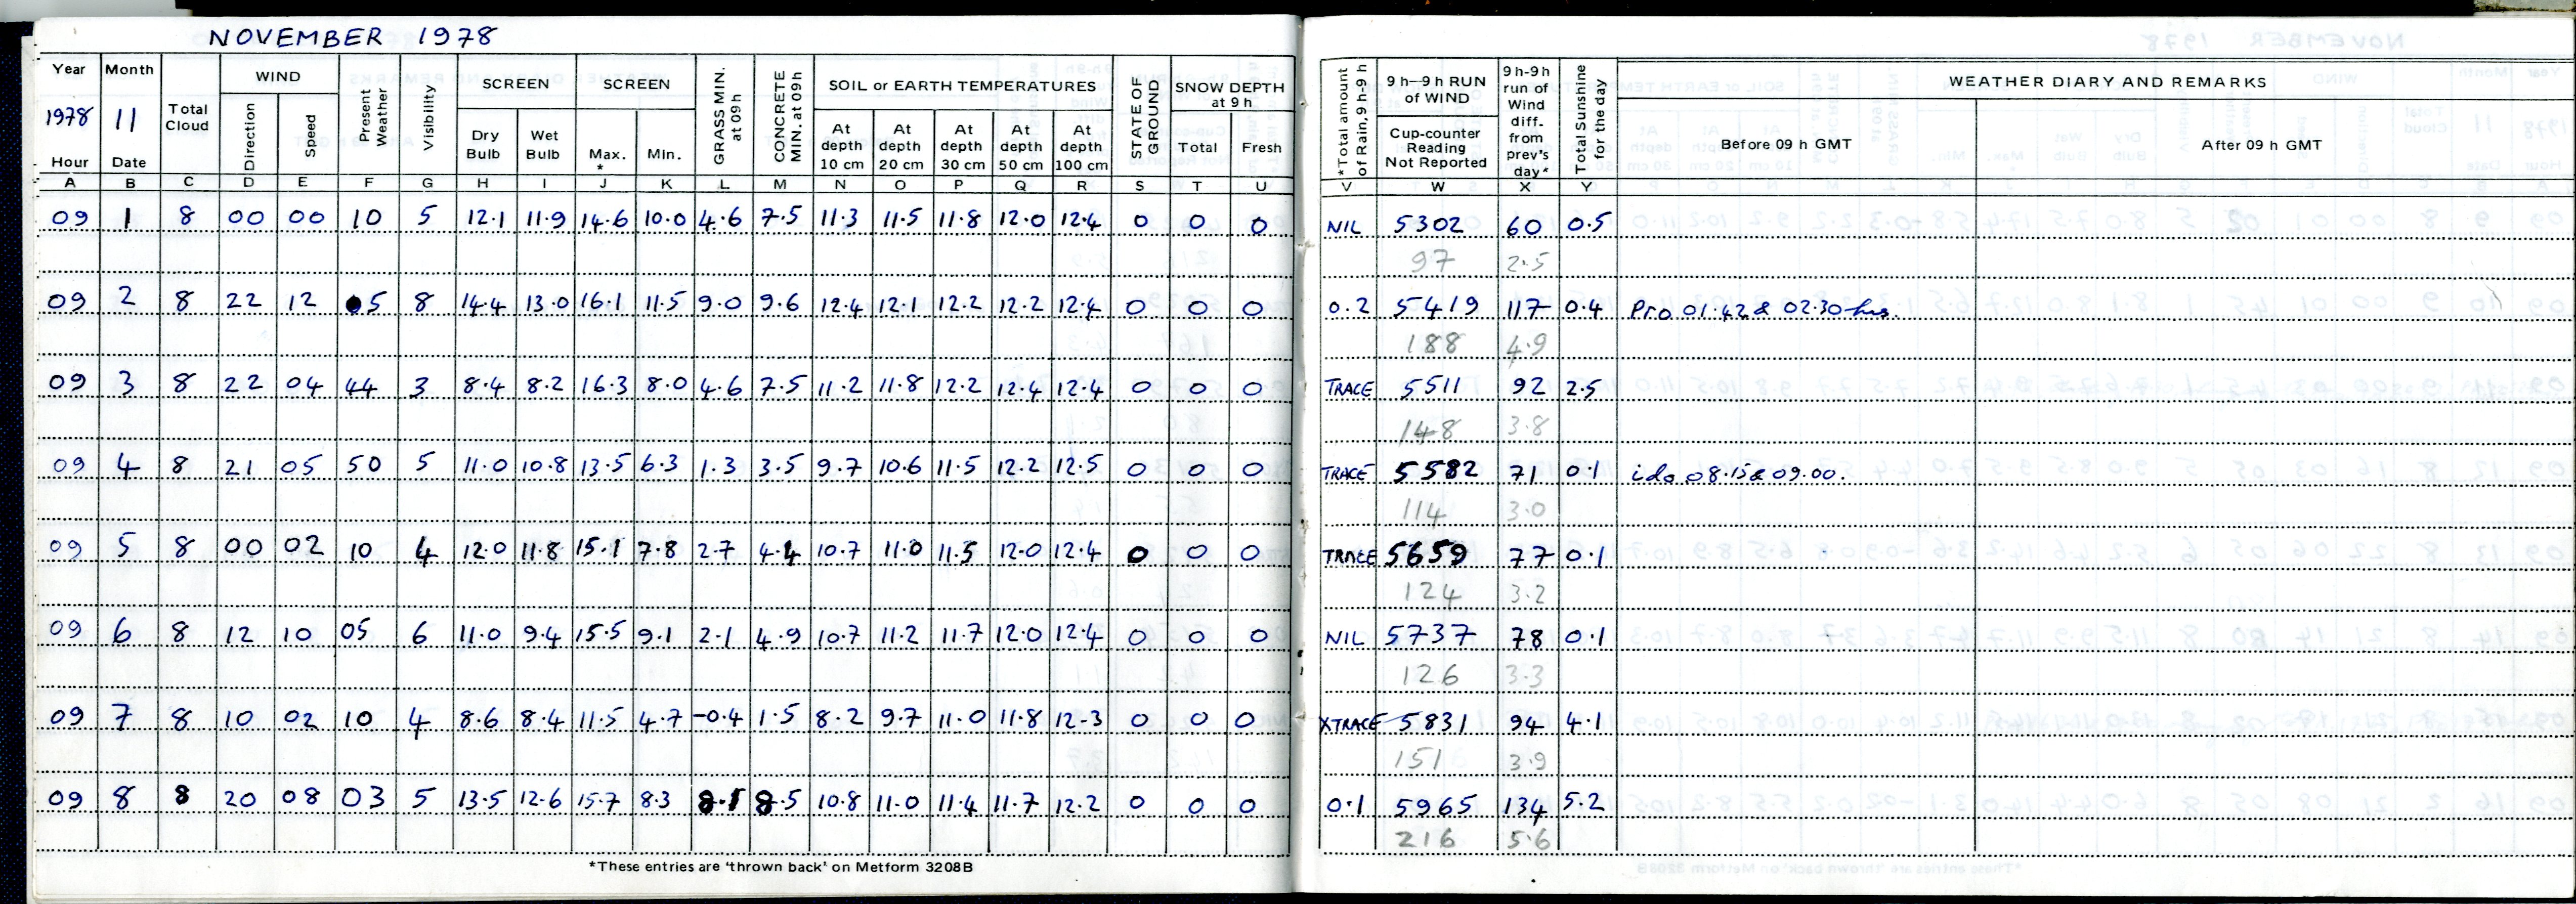 NOVEMBER 1978
Year Month Total Cloud WIND Present Weather Visibility SCREEN SCREEN GRASS MIN. at 09h CONCRETE MIN. at 09h SOIL or EARTH TEMPERATURES STATE OF GROUND SNOW DEPTH at 9 h *Total amount of Rain, 9h-9h 9 h–9 h RUN of WIND 9 h-9h run of Wind diff. from prev's day* Total Sunshine for the day WEATHER DIARY AND REMARKS
1978 11 Direction Speed Dry Bulb Wet Bulb Max. * Min. At depth 10 cm At depth 20 cm At depth 30 cm At depth 50 cm At depth 100 cm Total Fresh Cup-counter Reading Not Reported Before 09 h GMT After 09 h GMT
Hour Date
A B C D E F G H I J K L M N O P Q R S T U V W X Y
09 1 8 00 00 10 5 12.1 11.9 14.6 10.0 4.6 7.5 11.3 11.5 11.8 12.0 12.4 0 0 0 NIL 5302 60 0.5
97 2.5
09 2 8 22 12 05 8 14.4 13.0 16.1 11.5 9.0 9.6 12.4 12.1 12.2 12.2 12.4 0 0 0 0.2 5419 117 0.4 Pro 01.42 & 02.30 hrs.
188 4.9
09 3 8 22 04 44 3 8.4 8.2 16.3 8.0 4.6 7.5 11.2 11.8 12.2 12.4 12.4 0 0 0 TRACE 5511 92 2.5
148 3.8
09 4 8 21 05 50 5 11.0 10.8 13.5 6.3 1.3 3.5 9.7 10.6 11.5 12.2 12.5 0 0 0 TRACE 5582 71 0.1 ido 08.15 & 09.00.
114 3.0
09 5 8 00 02 10 4 12.0 11.8 15.1 7.8 2.7 4.4 10.7 11.0 11.5 12.0 12.4 0 0 0 TRACE 5659 77 0.1
124 3.2
09 6 8 12 10 05 6 11.0 9.4 15.5 9.1 2.1 4.9 10.7 11.2 11.7 12.0 12.4 0 0 0 NIL 5737 78 0.1
126 3.3
09 7 8 10 02 10 4 8.6 8.4 11.5 4.7 -0.4 1.5 8.2 9.7 11.0 11.8 12.3 0 0 0 XTRACE 5831 94 4.1
151 3.9
09 8 8 20 08 03 5 13.5 12.6 15.7 8.3 8.1 8.5 10.8 11.0 11.4 11.7 12.2 0 0 0 0.1 5965 134 5.2
216 5.6
*These entries are 'thrown back' on Metform 3208B